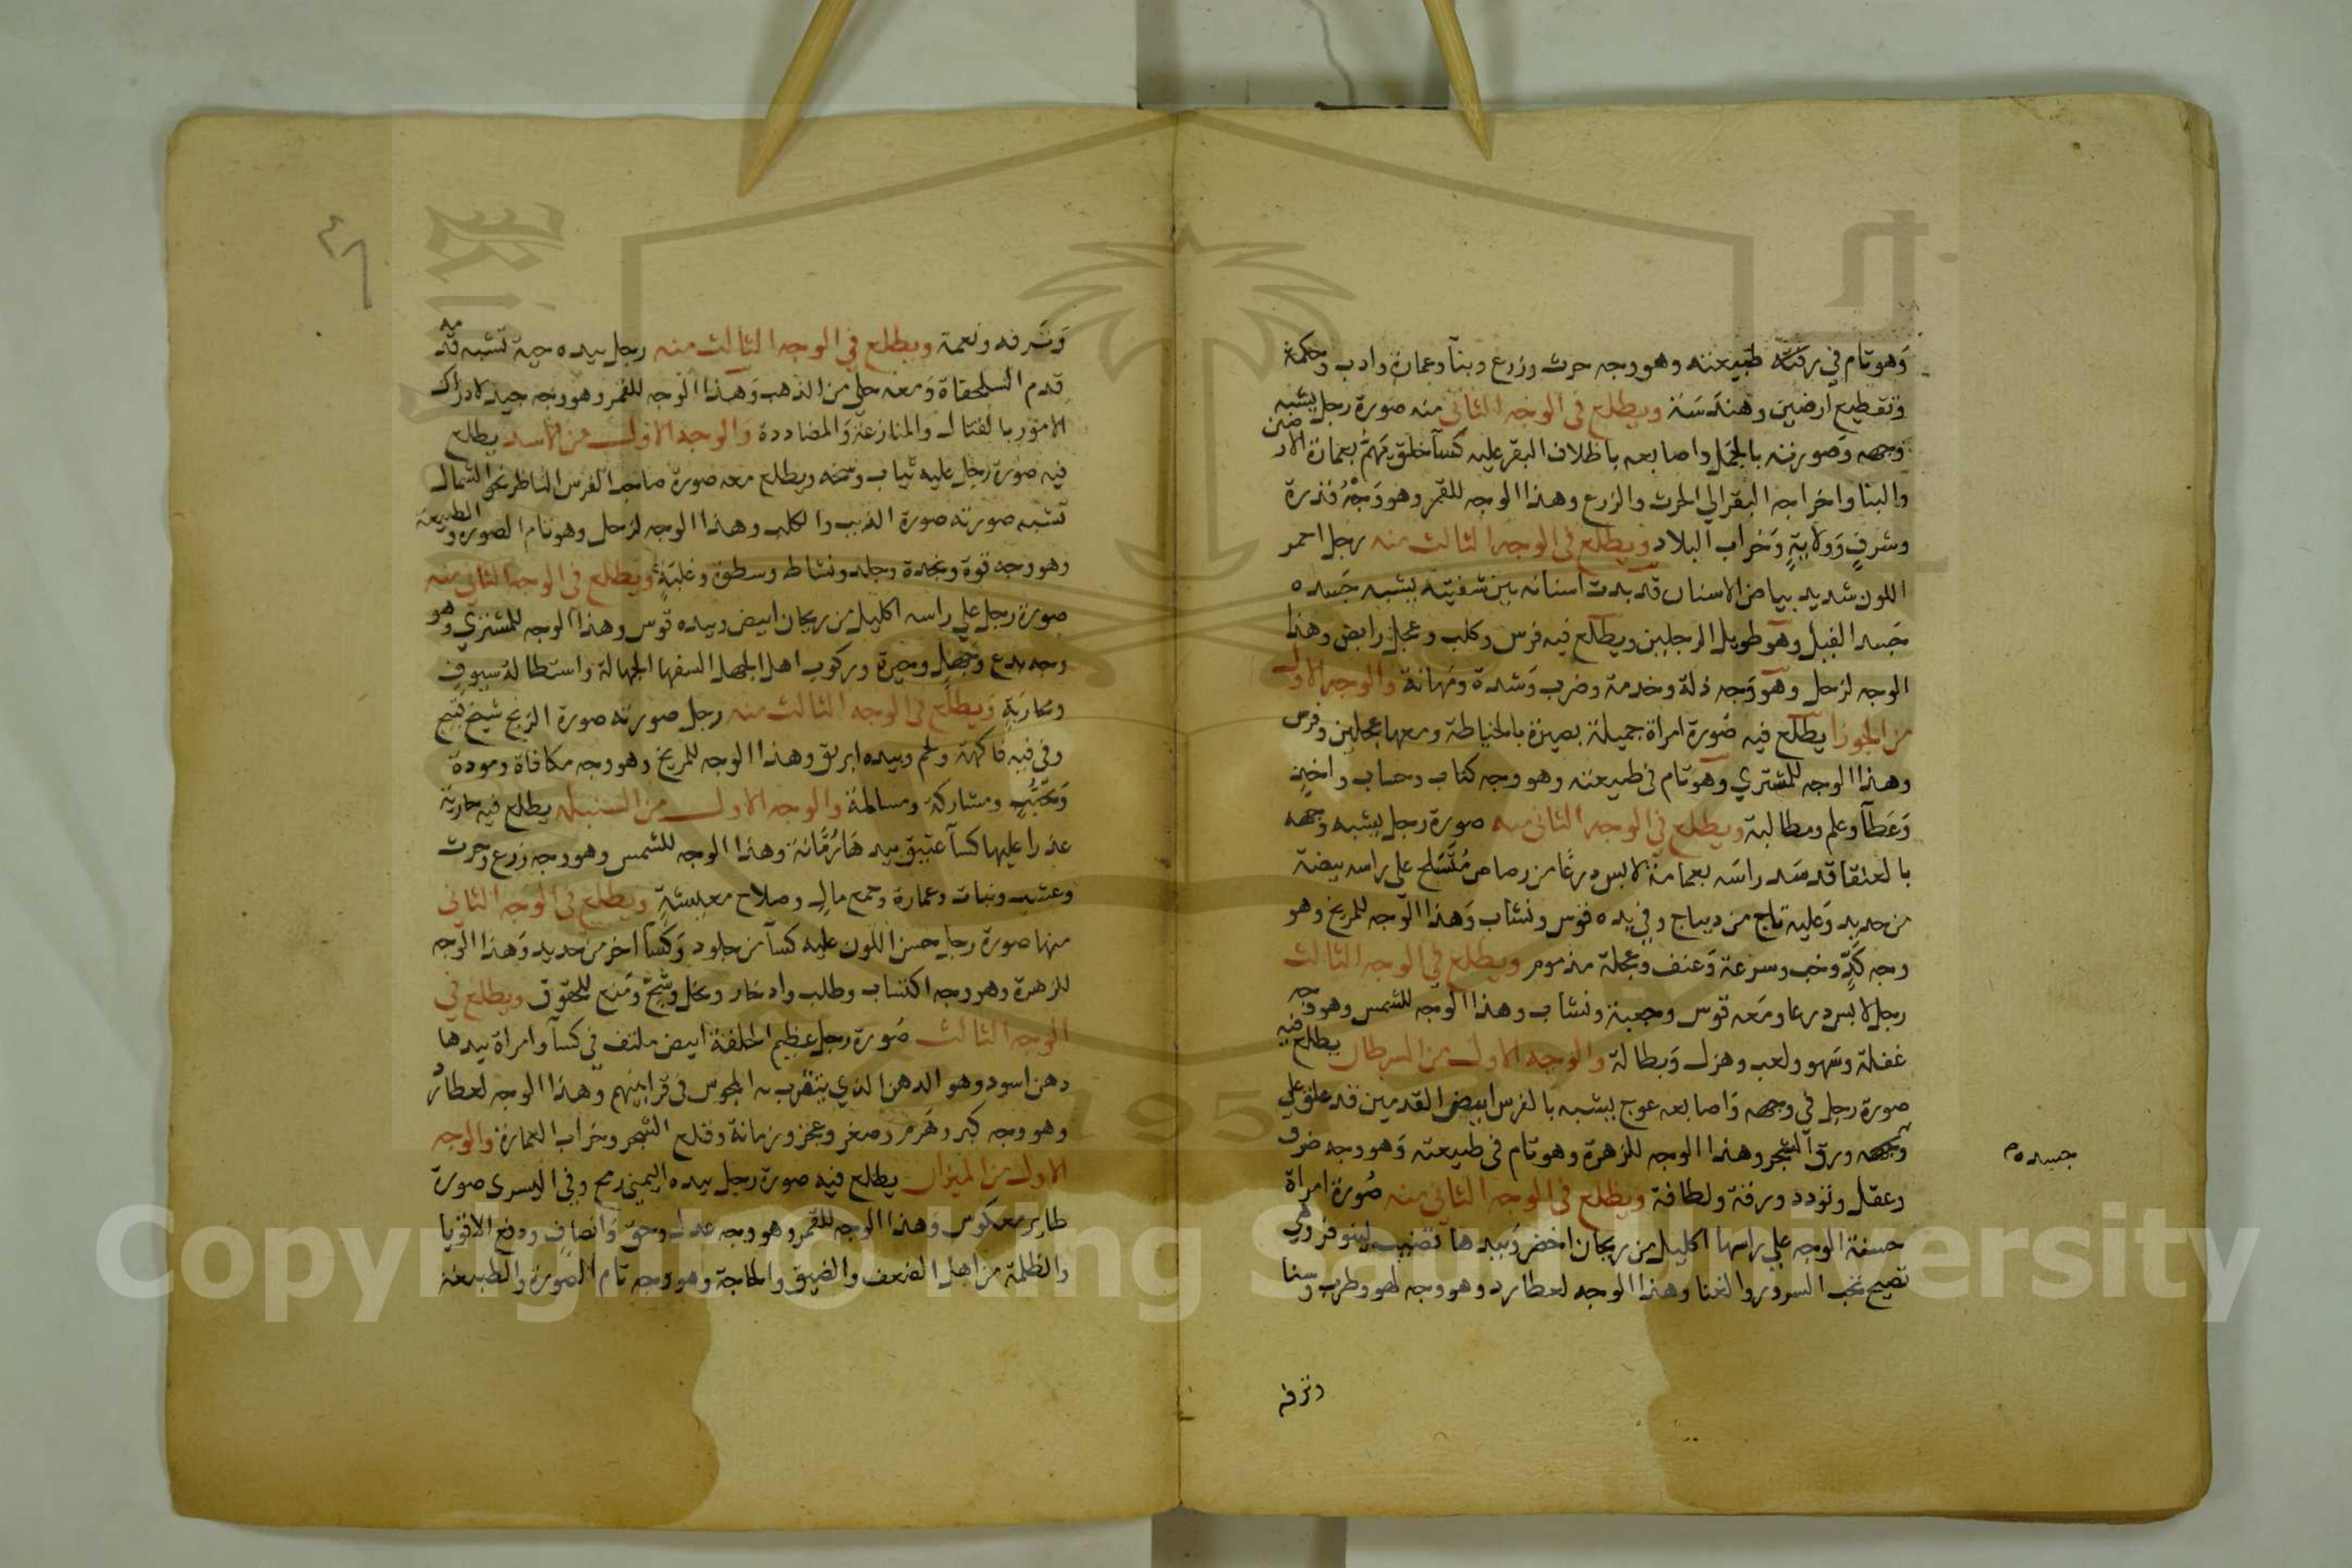 وهو تام في رقته طبيعته وهو وجه حرث وزرع وبنآ وعمارة وادب وحكمة
وتقطيع ارضين وهندسة ويطلع في الوجه الثاني منه صورة رجل يشبه
وجهه وصورته بالجمل واصابعه باظلاف البقر عليه كسآ خلق يهم بعمارة الارضين
والبنا واخراجه البقر الي الحرث والزرع وهذا الوجه للقمر وهو وجه قدرة
وشرف وولاية وخراب البلاد ويطلع في الوجه الثالث منه رجل احمر
اللون شديد بياض الاسنان قد بدت اسنانه بين شفتيه يشبه جسده
جسد الفيل وهو طويل الرجلين ويطلع فيه فرس وكلب وعجل رابض وهذا
الوجه لزحل وهو وجه ذلة وخدمة وضرب وشدة ومهانة والوجه الاول
من الجوزا يطلع فيه صورة امراة جميلة بصيرة بالخياطة ومعها عجلين وفرس
وهذا الوجه للمشتري وهو تام في طبيعته وهو وجه كتاب وحساب واخذ
وعطآ وعلم ومطالبة ويطلع في الوجه الثاني منه صورة رجل يشبه وجهه
بالعنقا قد سد راسه بعمامة لابس درعا من رصاص متسلح على راسه بيضة
من حديد وعليه تاج من ديباج وفي يده قوس ونشاب وهذا الوجه للمريخ وهو
وجه كد وخب وسرعة وعنف وعجلة مذموم ويطلع في الوجه الثالث
رجل لابس درعا ومعه قوس وجعبة ونشاب وهذا الوجه للشمس وهو وجه
غفلة وسهو ولعب وهزل وبطالة والوجه الاول من السرطان يطلع فيه
صورة رجل في وجهه واصابعه عوج يشبه بالفرس ابيض القدمين قد علق علي
وجهه ورق الشجر وهذا الوجه للزهرة وهو تام في طبيعته وهو وجه ظرف
جسده م
وعقل وتودد ورقة ولطافة ويطلع في الوجه الثاني منه صورة امراة
حسنة الوجه علي راسها اكليل من ريحان اخضر وبيدها قضيب لينوفر وهي
تصيح تحب السرور والغنا وهذا الوجه لعطارد وهو وجه لهو وطرب وسنا
وترفه
٤٦
وترفه ونعمة ويطلع في الوجه الثالث منه رجل بيده حية تشبه قدمه
قدم السلحفاة ومعه حلي من الذهب وهذا الوجه للقمر وهو وجه جيد لادراك
الامور بالقتال والمنازعة والمضاددة والوجه الاول من الاسد يطلع
فيه صورة رجل عليه ثياب وسخة ويطلع معه صورة صاحب الفرس الناظر نحو الشمال
تشبه صورته صورة الذيب والكلب وهذا الوجه لزحل وهو تام الصورة والطبيعة
وهو وجه قوة ونجدة وجلد ونشاط وسطوة وغلبة ويطلع في الوجه الثاني منه
صورة رجل علي راسه اكليل من ريحان ابيض وبيده قوس وهذا الوجه للمشتري وهو
وجه بدع وجهل وحيرة وركوب اهل الجهل السفها الجهالة واستطالة سيوف
ومحاربة ويطلع في الوجه الثالث منه رجل صورته صورة الزنج شيخ قبيح
وفي فيه فاكهة ولحم وبيده ابريق وهذا الوجه للمريخ وهو وجه مكافاة ومودة
وتحبب ومشاركة ومسالمة والوجه الاول من السنبلة يطلع فيه جارية
عذرا عليها كسآ عتيق بيدها رمانة وهذا الوجه للشمس وهو وجه زرع وحرث
وعشب ونبات وعمارة وجمع مال وصلاح معيشة ويطلع في الوجه الثاني
منها صورة رجل حسن اللون عليه كسآ من جلود وكسآ اخر من حديد وهذا الوجه
للزهرة وهو وجه اكتساب وطلب وادخار وبخل وشح ومنع للحقوق ويطلع في
الوجه الثالث صورة رجل عظيم الخلقة ابيض ملتف في كسآ وامراة بيدها
دهن اسود وهو الدهن الذي يتقرب به المجوس في قرابينهم وهذا الوجه لعطارد
وهو وجه كبر وهرم وصغر وعجز وزمانة وقلع الشجر وخراب العمارة والوجه
الاول من الميزان يطلع فيه صورة رجل بيده اليمني رمح وفي اليسرى صورة
طاير معكوس وهذا الوجه للقمر وهو وجه عدل وحق وانصاف ودفع الاقويا
والظلمة من اهل الضعف والضيق والحاجة وهو وجه تام الصورة والطبيعة
1957
Copyright © King Saud University